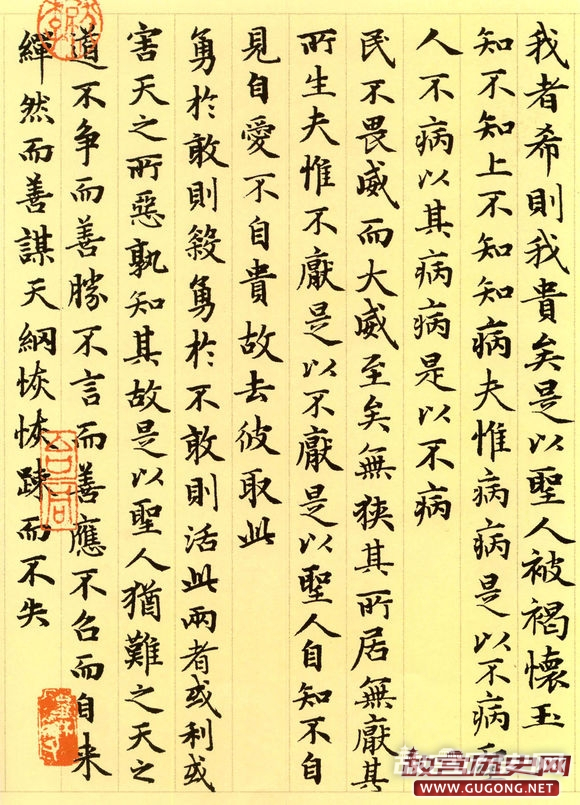 我者希則我貴矣是以聖人被褐懷玉
知不知上不知知病夫惟病病是以不病
人不病以其病病是以不病
民不畏威而大威至矣無狹其所居無厭其
所生夫惟不厭是以不厭是以聖人自知不自
見自愛不自貴故去彼取此
勇於敢則殺勇於不敢則活此兩者或利或
害天之所惡孰知其故是以聖人猶難之天之
道不争而善勝不言而善應不召而自来
繟然而善謀天網恢恢踈而不失
故宫历史网
WWW.GUGONG.NET